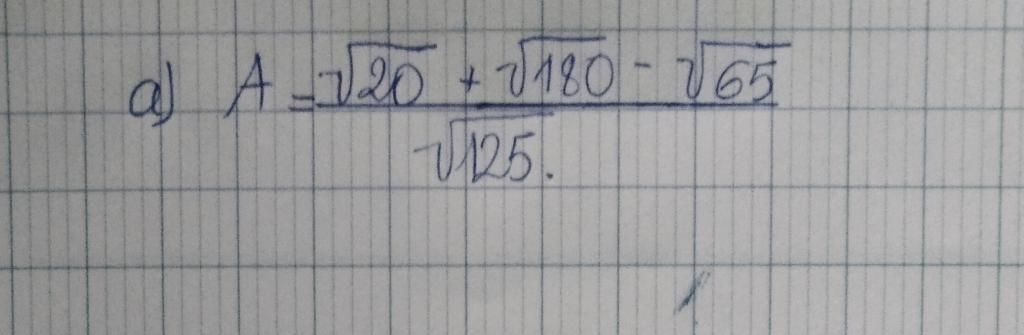 a) A = √20 + √180 - √65
√125.